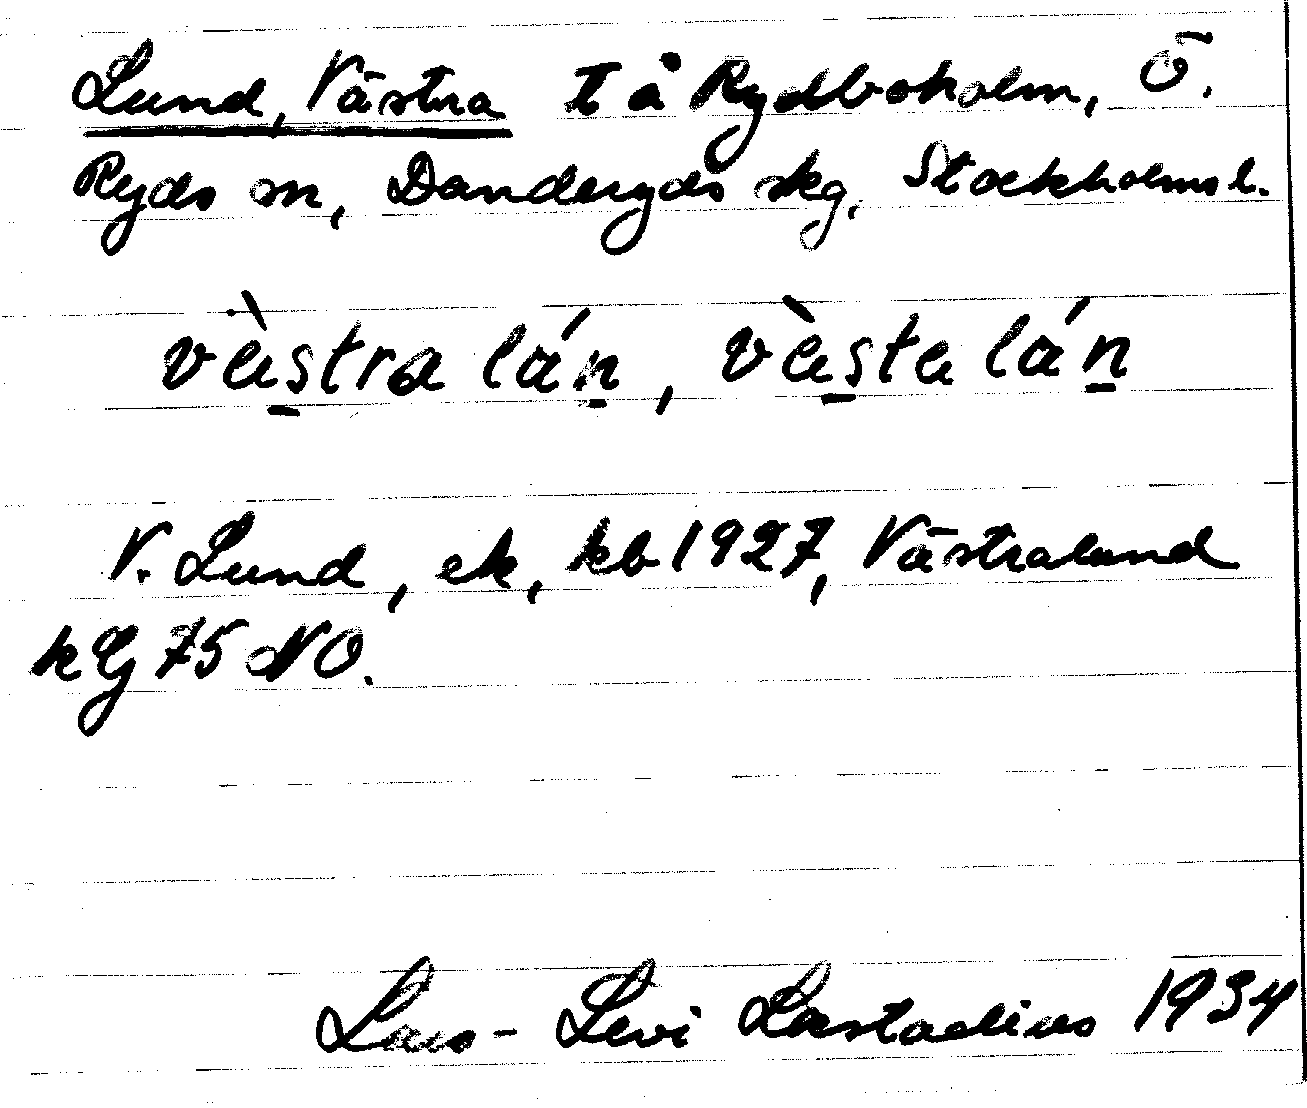 Lund, Västra t å Rydboholm, Ö.
Ryds sn, Danderyds skg, Stockholms l.
vä̀s̠tra lán̠, vä̀s̠ta lán̠
V. Lund, ek, kb 1927, Västralund
k Ej 75 NO.
Lars-Levi Læstadius 1934